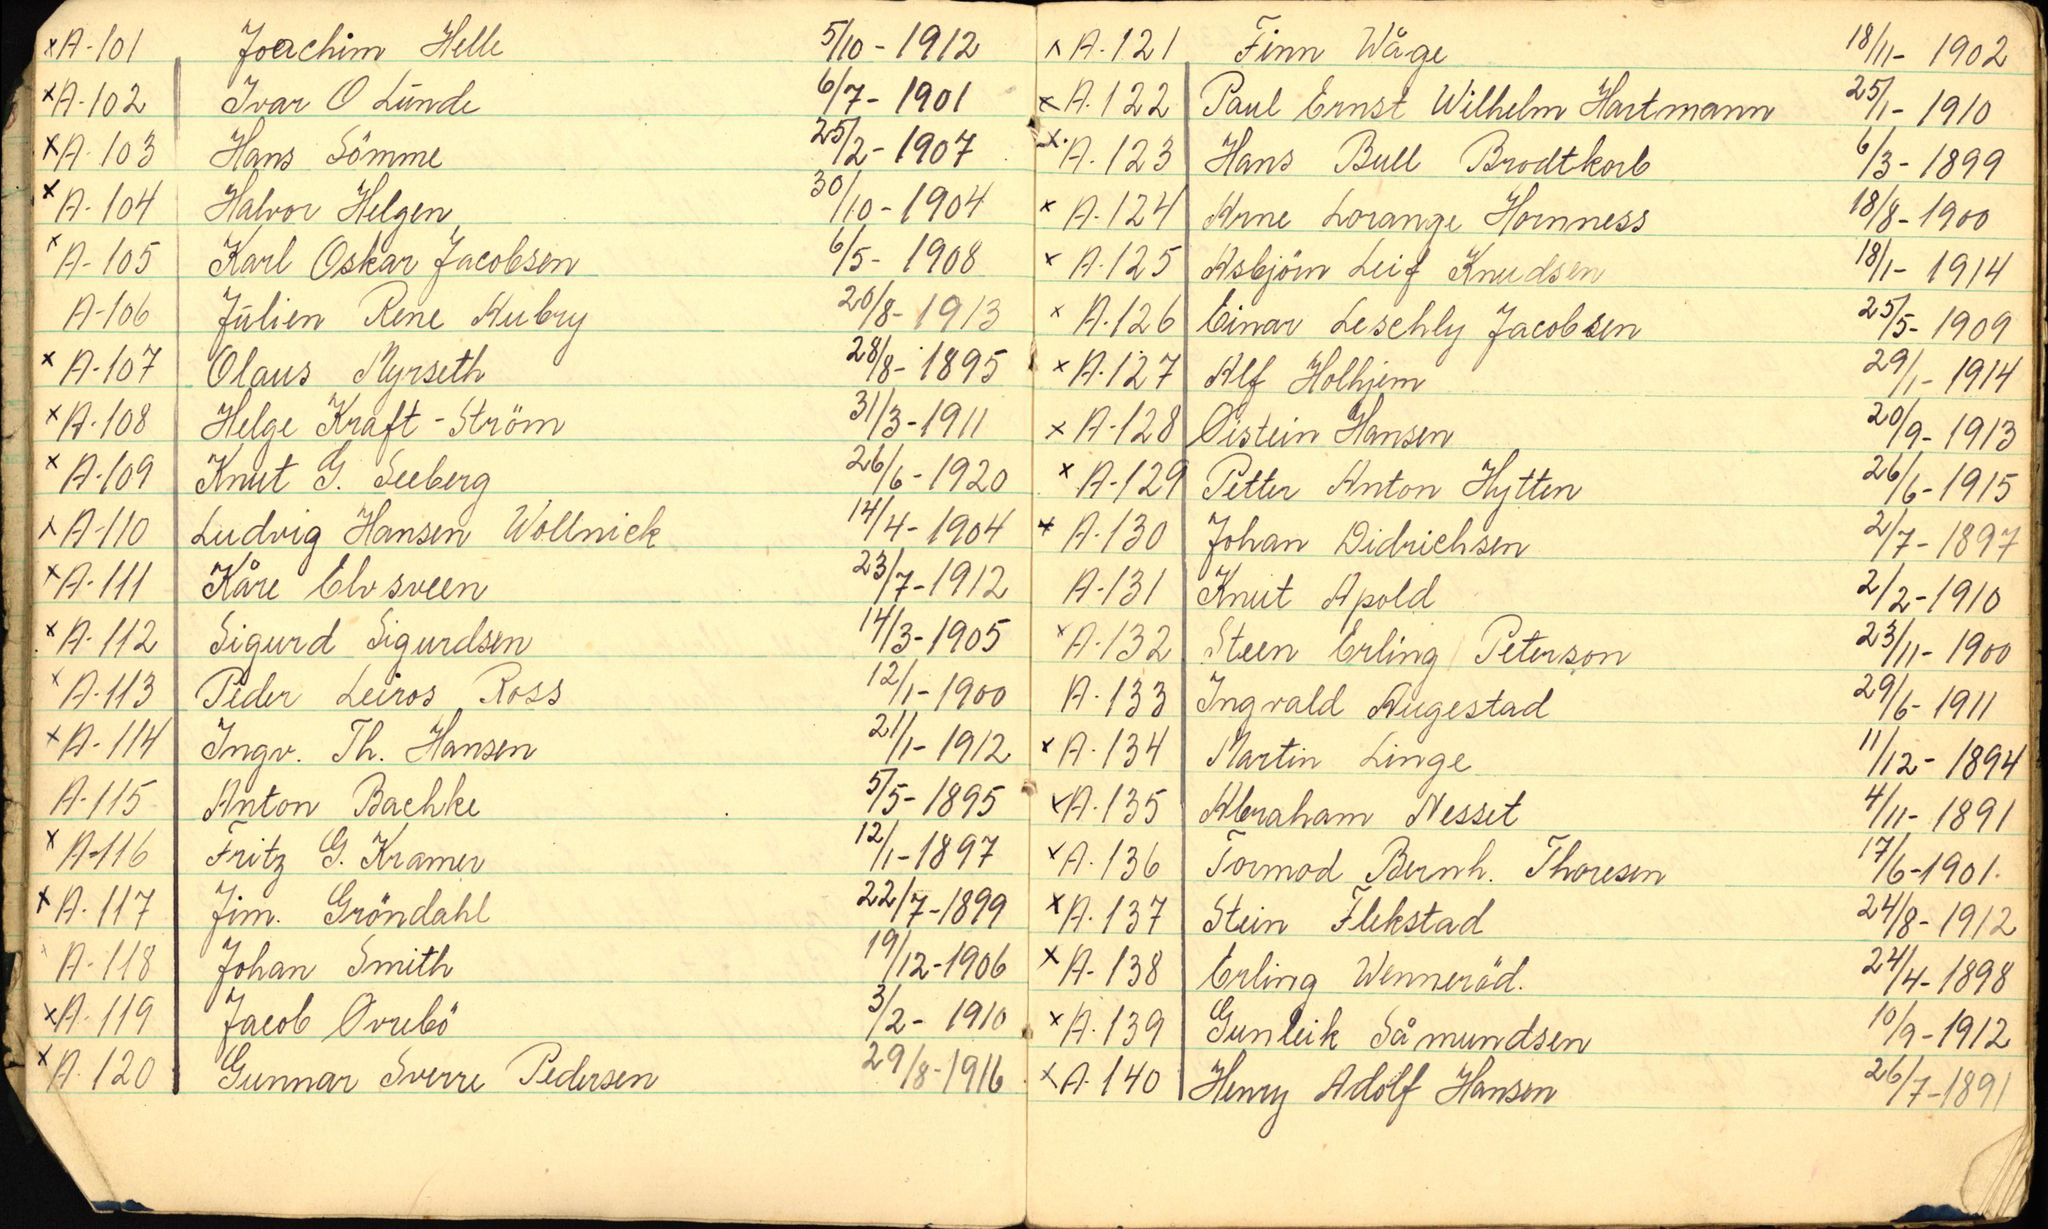 x A-101 Joachim Helle 5/10 - 1912
x A-102 Ivar O Lunde 6/7 - 1901
x A-103 Hans Sömme 25/2 - 1907
x A-104 Halvor Helgen 30/10 - 1904
x A-105 Karl Oskar Jacobsen 6/5 - 1908
A-106 Julien Rene Aubry 20/8 - 1913
x A-107 Olaus Myrseth 28/8 - 1895
x A-108 Helge Kraft-Ström 31/3 - 1911
x A-109 Knut G. Seeberg 26/6 - 1920
x A-110 Ludvig Hansen Wollnick 14/4 - 1904
x A-111 Kåre Elvsveen 23/7 - 1912
x A-112 Sigurd Sigurdsen 14/3 - 1905
x A-113 Peder Leiros Ross 12/1 - 1900
x A-114 Ingv. Th. Hansen 21/1 - 1912
A-115 Anton Bachke 5/5 - 1895
x A-116 Fritz G. Kramer 12/1 - 1897
x A-117 Jim. Gröndahl 22/7 - 1899
x A-118 Johan Smith 19/12 - 1906
x A-119 Jacob Övrebö 3/2 - 1910
x A-120 Gunnar Sverre Pedersen 29/8 - 1916
x A-121 Finn Wåge 18/11 - 1902
x A-122 Paul Ernst Wilhelm Hartmann 25/1 - 1910
x A-123 Hans Bull Brodtkorb 6/3 - 1899
x A-124 Arne Lorange Hornness 18/8 - 1900
x A-125 Asbjörn Leif Knudsen 18/1 - 1914
x A-126 Einar Leschly Jacobsen 25/5 - 1909
x A-127 Alf Holhjem 29/1 - 1914
x A-128 Öistein Hansen 20/9 - 1913
x A-129 Petter Anton Hytten 26/6 - 1915
x A-130 Johan Didrichsen 2/7 - 1897
A-131 Knut Apold 2/2 - 1910
x A-132 Steen Erling Peterson 23/11 - 1900
A-133 Ingvald Augestad 29/6 - 1911
x A-134 Martin Linge 11/12 - 1894
x A-135 Abraham Nesset 4/11 - 1891
x A-136 Tormod Bernh. Thoresen 17/6 - 1901.
x A-137 Stein Flekstad 24/8 - 1912
x A-138 Erling Wenneröd. 24/4 - 1898
x A-139 Gunleik Såmundsen 10/9 - 1912
x A-140 Henry Adolf Hansen 26/7 - 1891